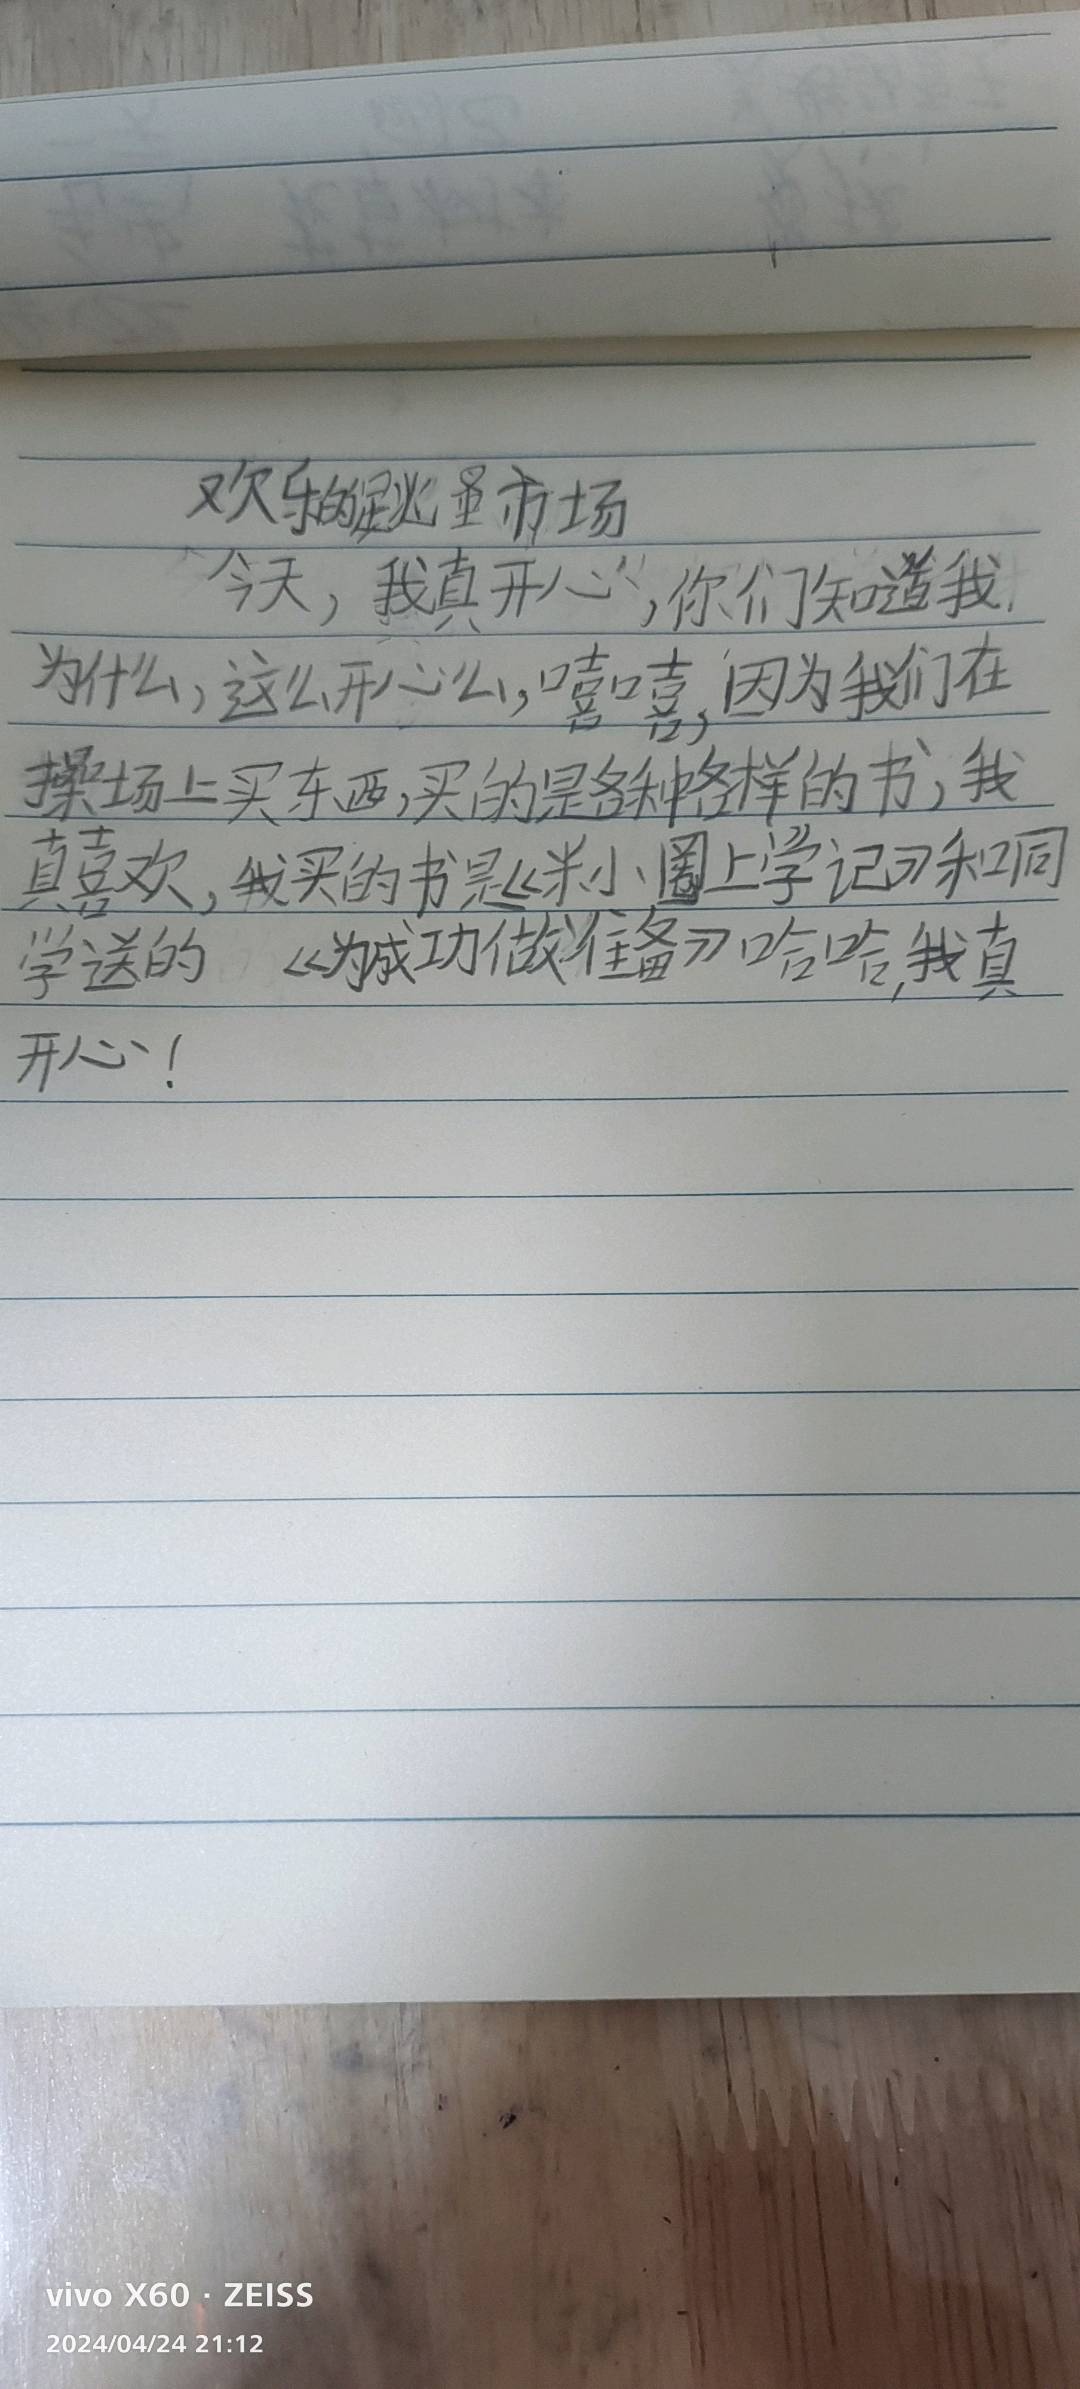 欢乐的跳蚤市场
今天，我真开心，你们知道我
为什么，这么开心么，嘻嘻，因为我们在
操场上买东西，买的是各种各样的书，我
真喜欢，我买的书是《米小圈上学记》和同
学送的 《为成功做准备》哈哈，我真
开心！
vivo X60 · ZEISS
2024/04/24 21:12